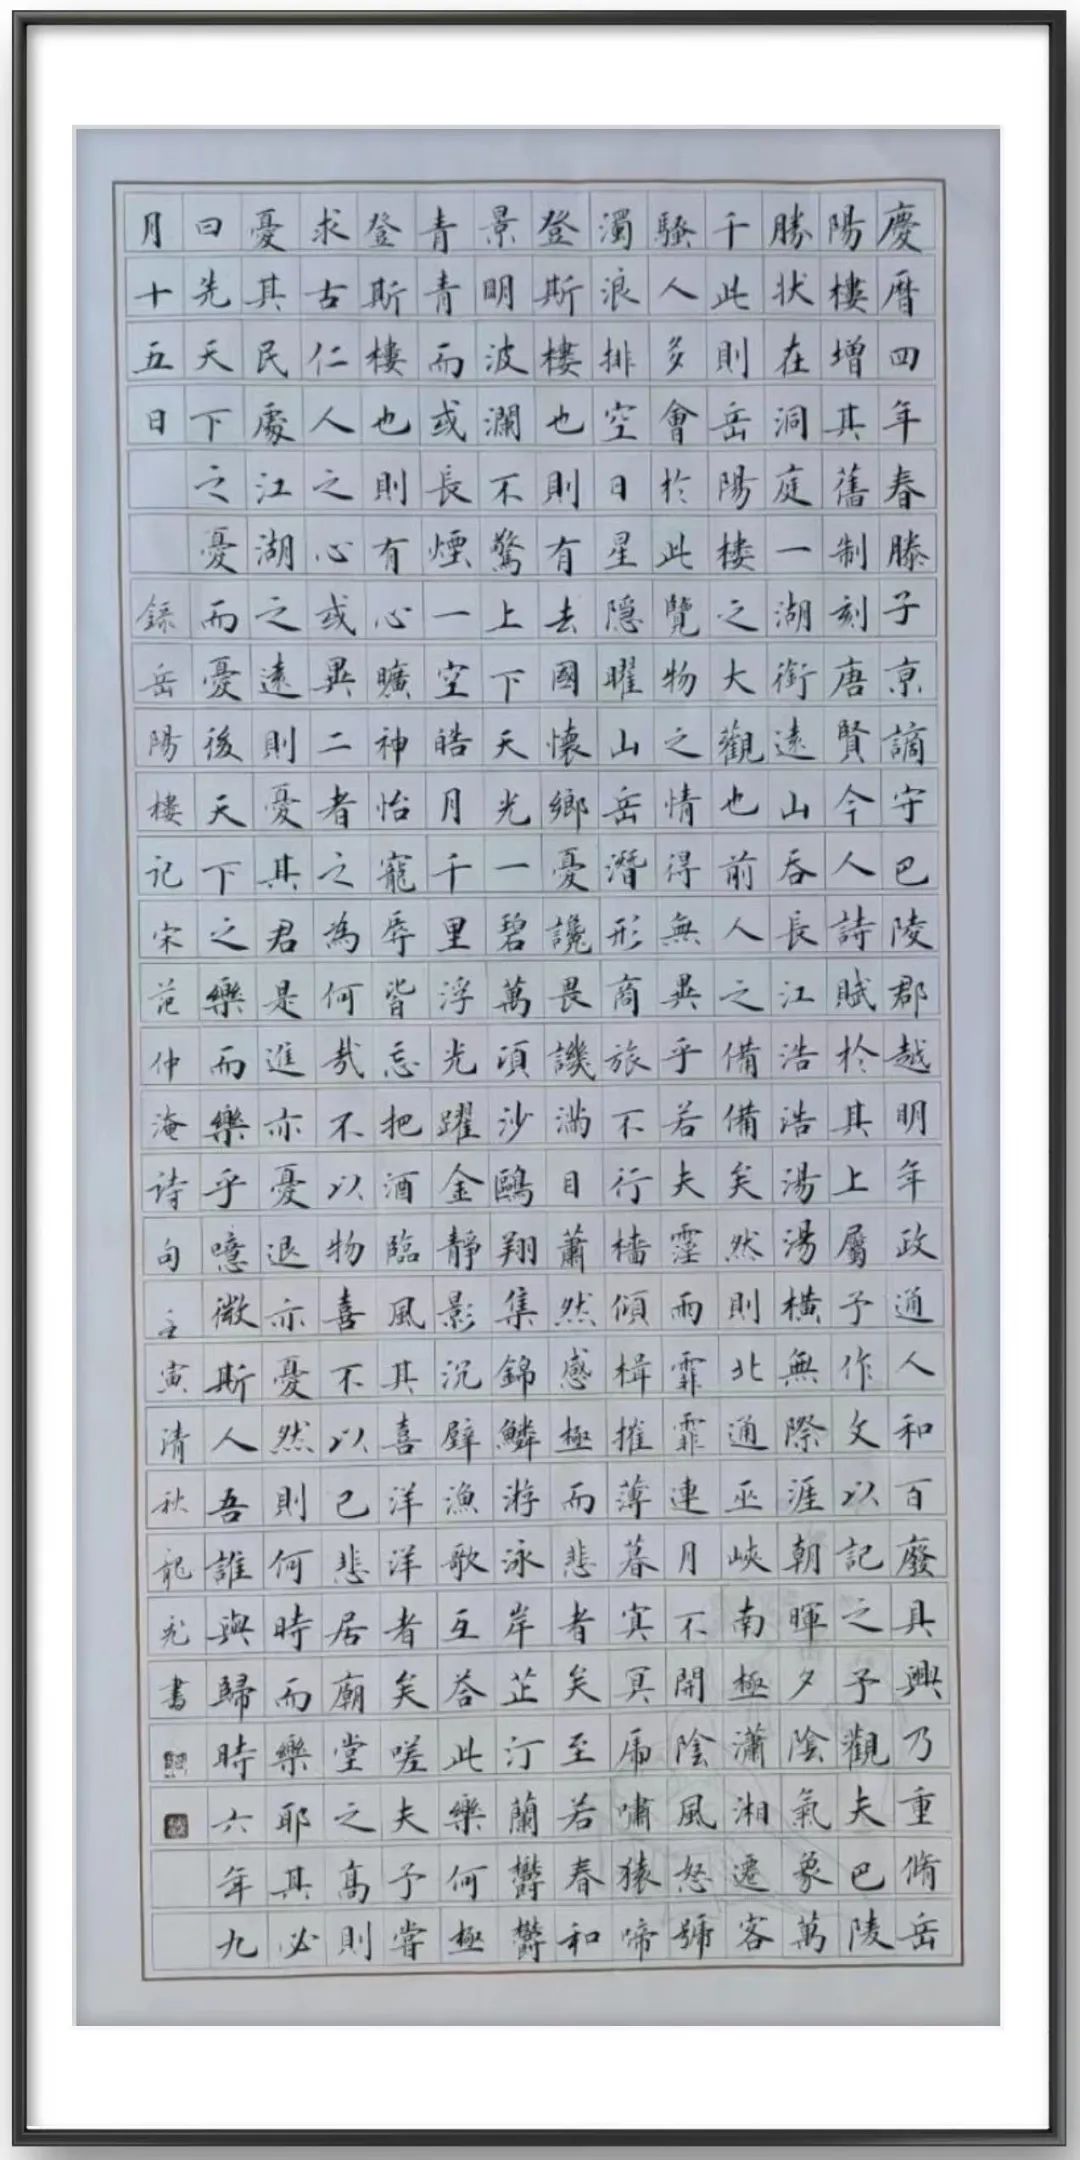 慶曆四年春滕子京謫守巴陵郡越明年政通人和百廢具興乃重脩岳
陽樓增其舊制刻唐賢今人詩賦於其上屬予作文以記之予觀夫巴陵
勝状在洞庭一湖銜遠山吞長江浩浩湯湯橫無際涯朝暉夕陰氣象萬
千此則岳陽樓之大觀也前人之備備矣然則北通巫峽南極瀟湘遷客
騷人多會於此覽物之情得無異乎若夫霪雨霏霏連月不開陰風怒號
濁浪排空日星隱曜山岳潛形商旅不行檣傾楫摧薄暮冥冥虎嘯猿啼
登斯樓也則有去國懷鄉憂讒畏譏滿目蕭然感極而悲者矣至若春和
景明波瀾不驚上下天光一碧萬頃沙鷗翔集錦鱗游泳岸芷汀蘭鬱鬱
青青而或長煙一空皓月千里浮光躍金靜影沉璧漁歌互答此樂何極
登斯樓也則有心曠神怡寵辱皆忘把酒臨風其喜洋洋者矣嗟夫予嘗
求古仁人之心或異二者之為何哉不以物喜不以己悲居廟堂之高則
憂其民處江湖之遠則憂其君是進亦憂退亦憂然則何時而樂耶其必
曰先天下之憂而憂後天下之樂而樂乎噫微斯人吾誰與歸時六年九
月十五日 錄岳陽樓記宋范仲淹詩句壬寅清秋龍書